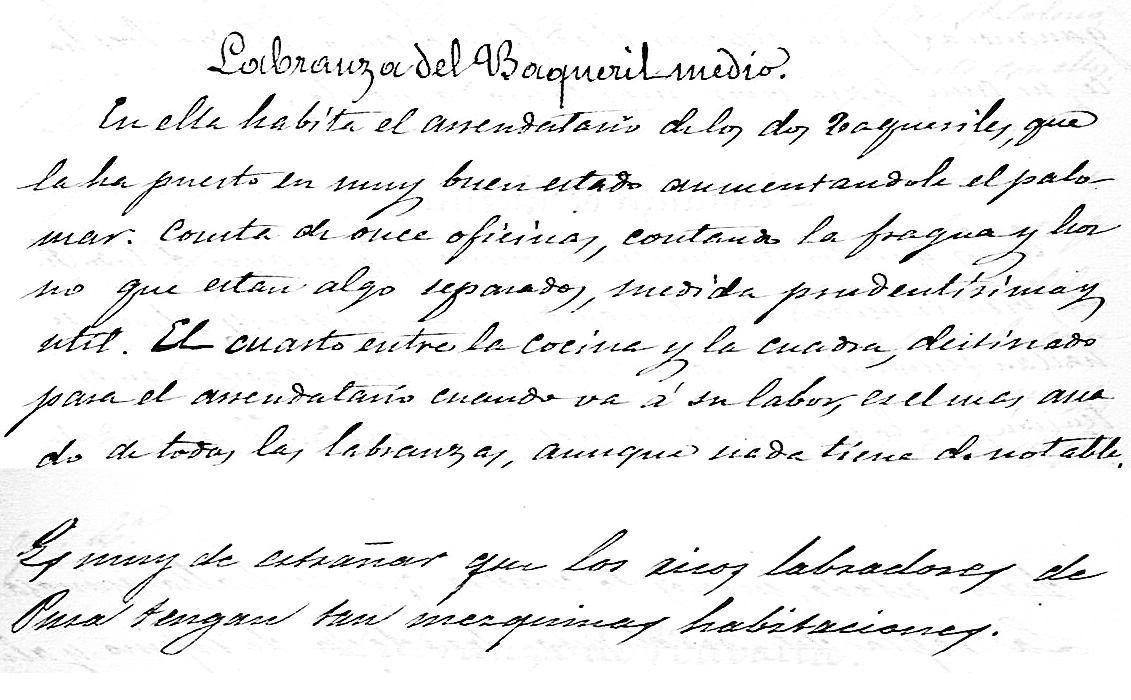 Labranza del Baqueril medio.
En ella habita el arrendatario de los dos Baqueriles, que
la ha puesto en muy buen estado aumentandole el palo-
mar. Consta de once oficinas, contando la fragua y hor
no que estan algo separados, medida prudentísima y
util. El cuarto entre la cocina y la cuadra, destinado
para el arrendatario cuando va á su labor, es el mas asea
do de todas las labranzas, aunque nada tiene de notable.
Es muy de estrañar que los ricos labradores de
tengan tan mezquinas habitaciones.